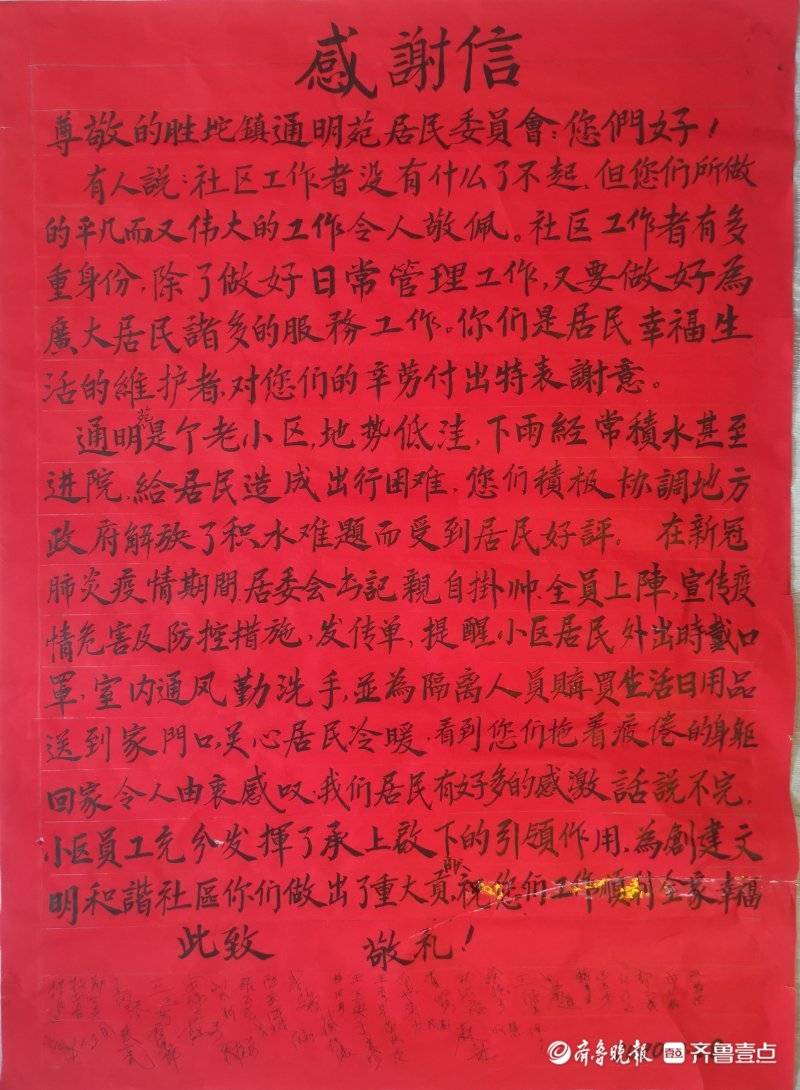 感謝信
尊敬的胜坨鎮通明苑居民委員會:您們好!
有人説:社区工作者没有什么了不起,但您们所做
的平凡而又伟大的工作令人敬佩。社区工作者有多
重身份,除了做好日常管理工作,又要做好為
廣大居民諸多的服務工作。你们是居民幸福生
活的維护者,对您们的辛劳付出特表謝意。
通明苑是个老小区,地势低洼,下雨經常積水甚至
进院,給居民造成出行困难,您们積极协調地方
政府解放了积水难題而受到居民好評。在新冠
肺炎疫情期間,居委会书記親自掛帅,全員上陣,宣传疫
情危害及防控措施,发传单,提醒小区居民外出時戴口
罩,室内通风勤洗手,並為隔离人員購買生活日用品
送到家門口,关心居民冷暖,看到您们拖着疲倦的身躯
回家令人由衷感叹,我们居民有好多的感激話説不完,
小区员工充分发揮了承上啟下的引領作用,為創建文
明和諧社區你们做出了重大貢献,祝您们工作順利全家幸福
此致 敬礼!
齐鲁晚报 壹点 齐鲁壹点